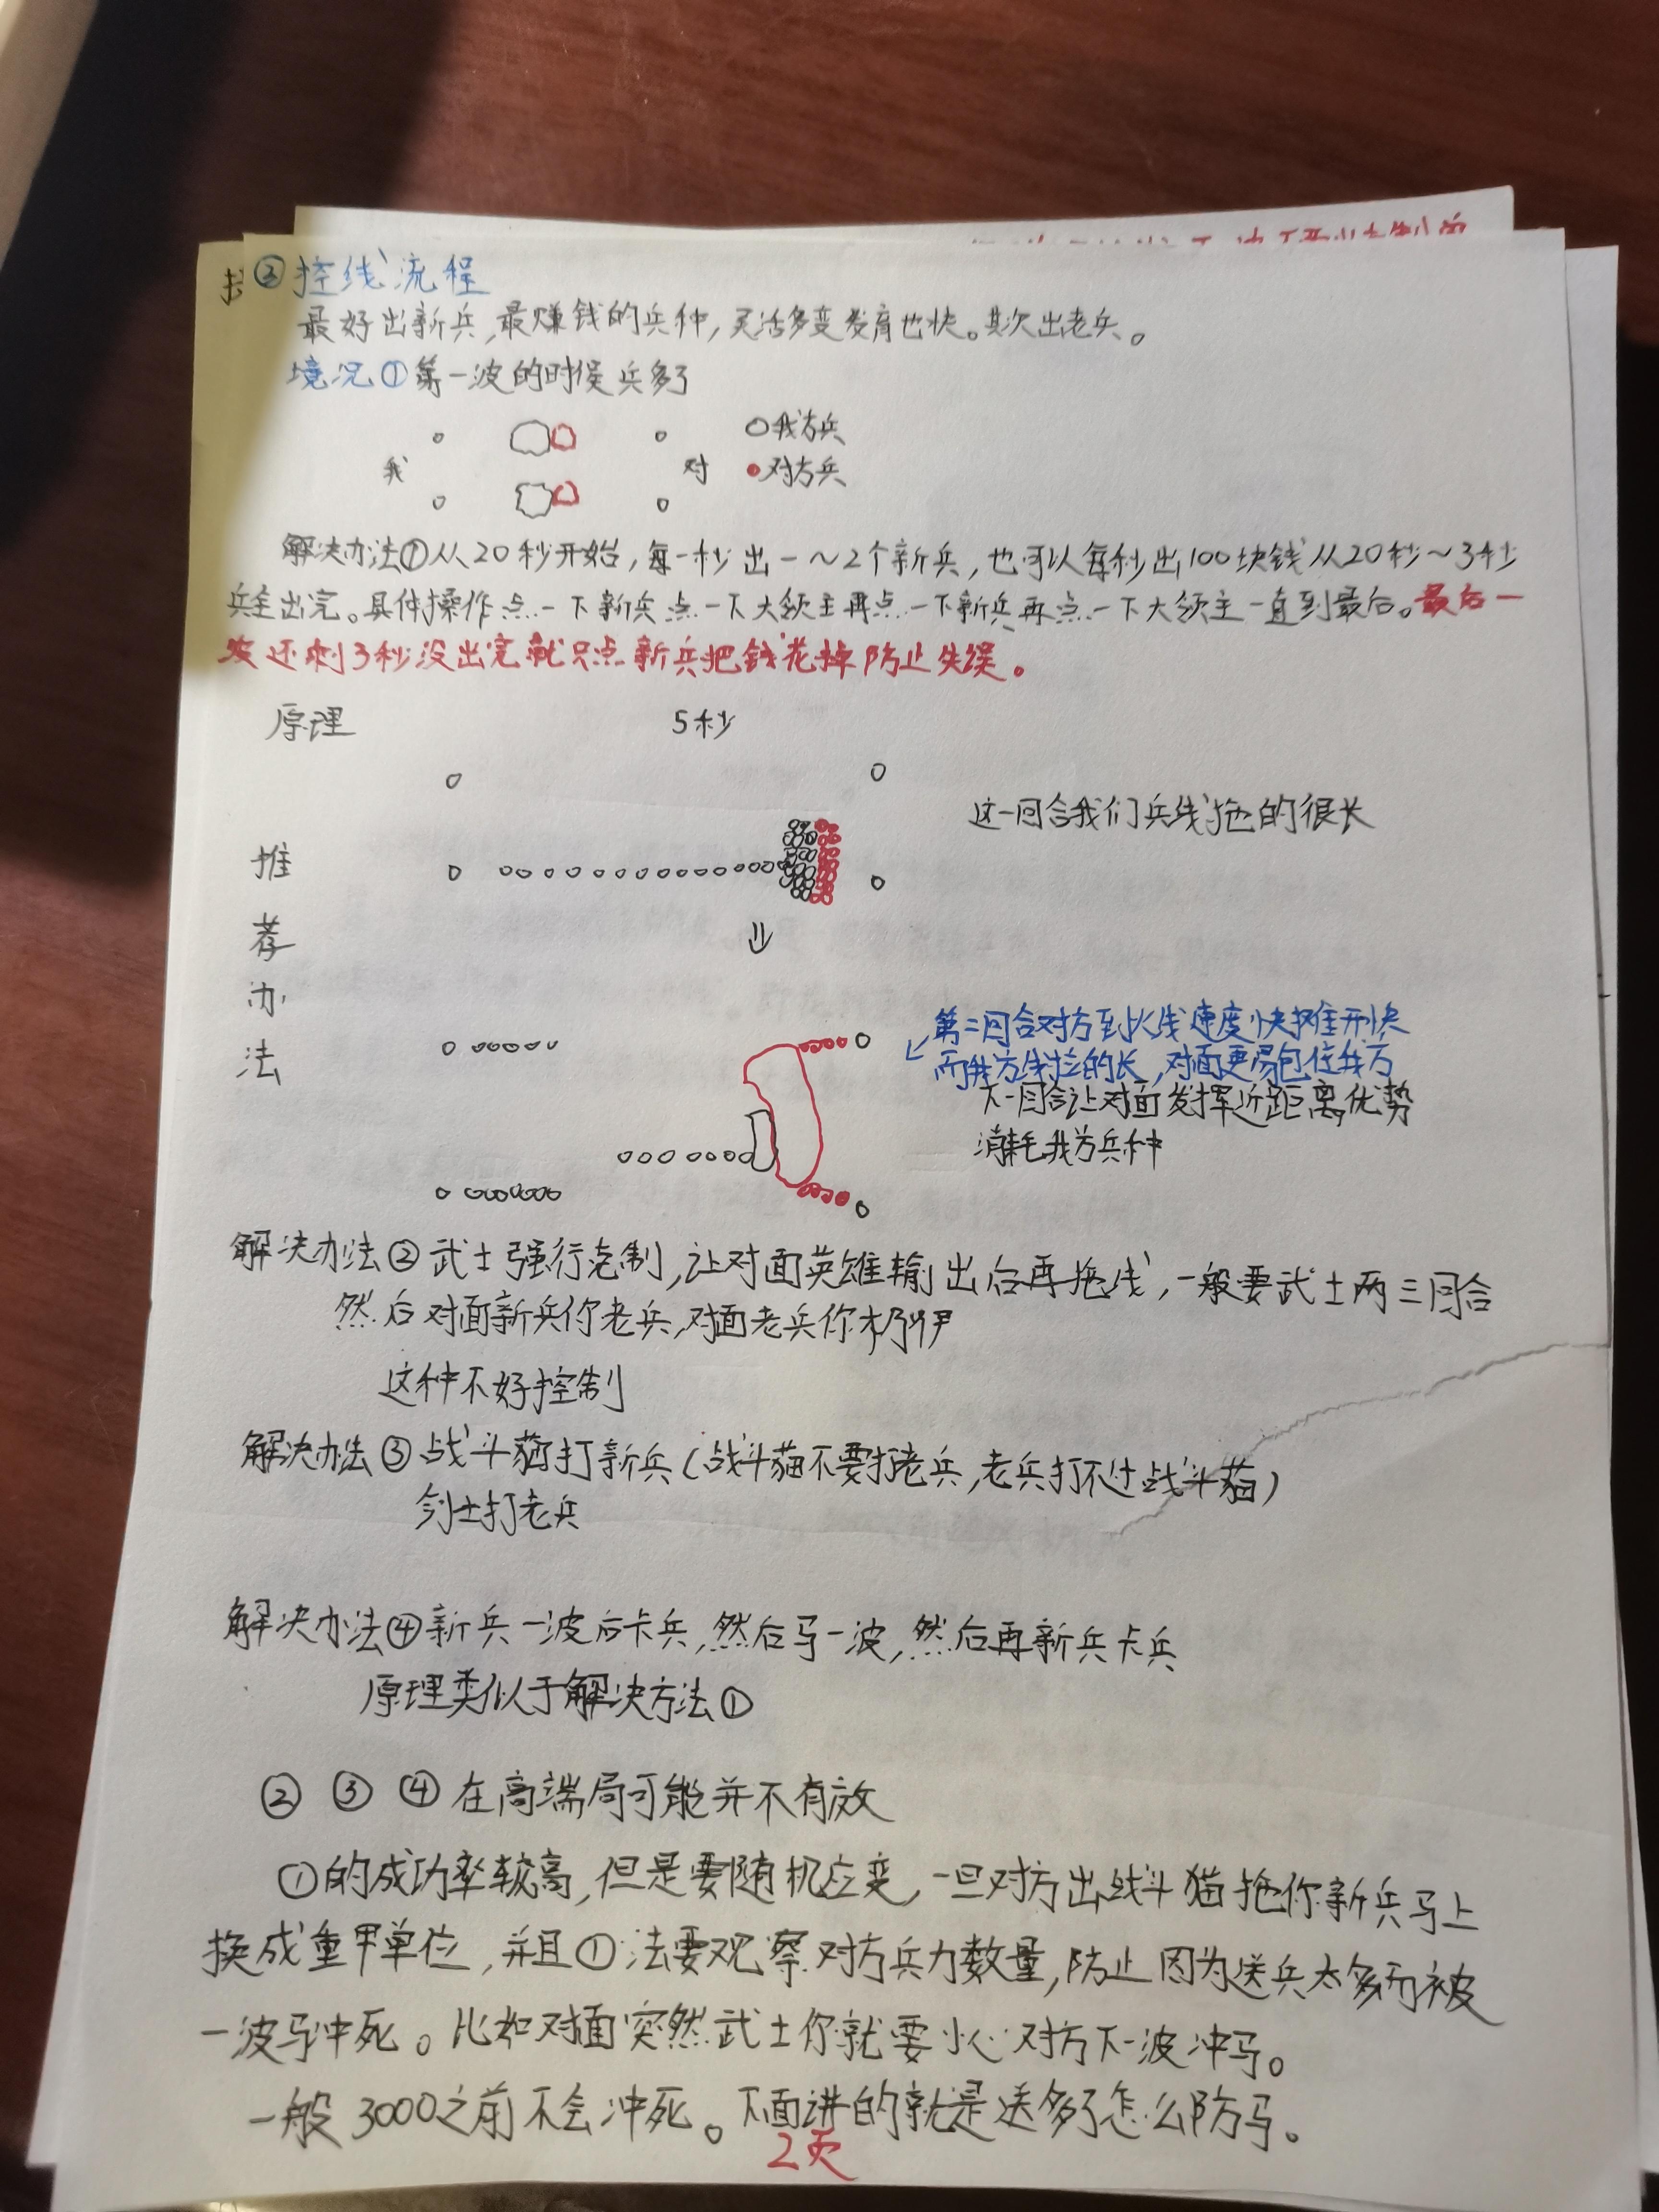 ②控线流程
最好出新兵,最赚钱的兵种,灵活多变发育也快。其次出老兵。
境况①第一波的时候兵多了
○我方兵
我 对 ●对方兵
解决办法①从20秒开始,每一秒出一～2个新兵,也可以每秒出100块钱从20秒～3秒
兵全出完。具体操作点一下新兵点一下大领主再点一下新兵再点一下大领主一直到最后。最后一
波还剩3秒没出完就只点新兵把钱花掉防止失误。
原理 5秒
这一回合我们兵线拖的很长
推
荐
办
法
第二回合对方到比线速度快摊开快
而我方线拉的长,对面更易包住我方
下一回合让对面发挥近距离优势
消耗我方兵种
解决办法②武士强行克制,让对面英雄输出后再拖线,一般要武士两三回合
然后对面新兵你老兵,对面老兵你
这种不好控制
解决办法③战斗猫打新兵(战斗猫不要打老兵,老兵打不过战斗猫)
剑士打老兵
解决办法④新兵一波后卡兵,然后马一波,然后再新兵卡兵
原理类似于解决方法①
② ③ ④在高端局可能并不有效
①的成功率较高,但是要随机应变,一旦对方出战斗猫拖你新兵马上
换成重甲单位,并且①法要观察对方兵力数量,防止因为送兵太多而被
一波马冲死。比如对面突然武士你就要小心对方下一波冲马。
一般3000之前不会冲死。下面讲的就是送多了怎么防马。
2页